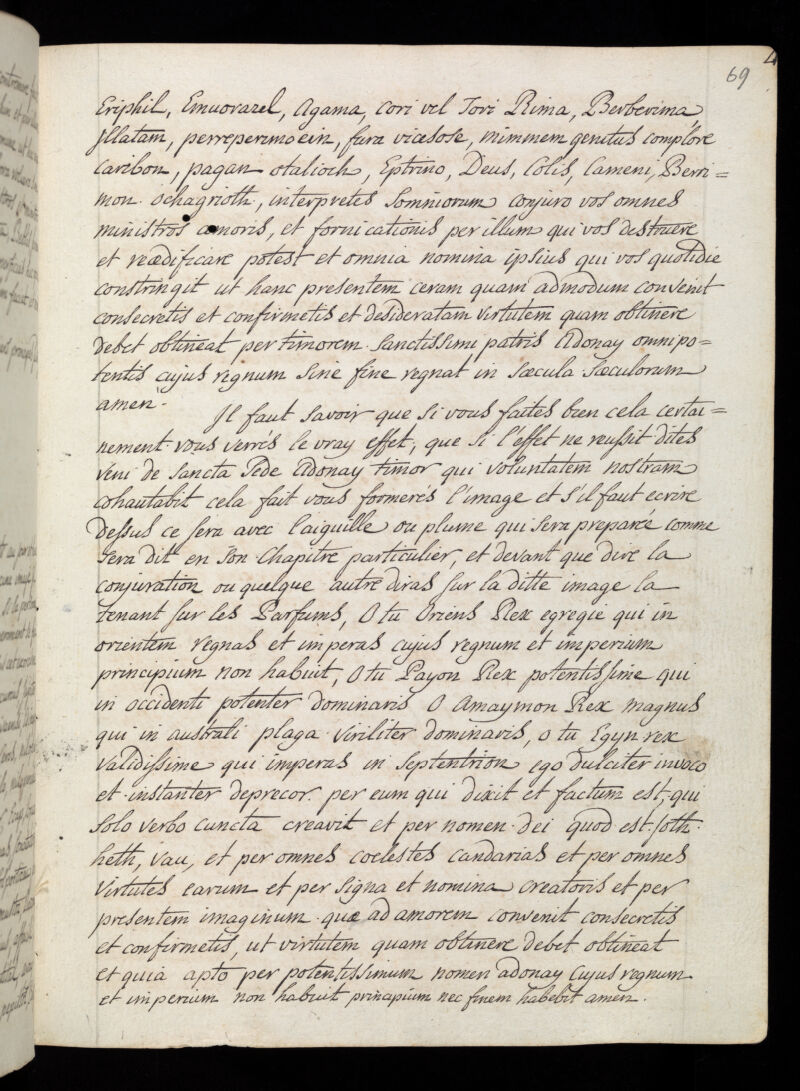 69
Eriphil, Emuovazel, Agama, Cori vel Tori Rima, Berberima
Jllatam, perreperimoein, fara vicesose, mimmem genitus complore
Caribon, pagan otalioch, Eptrino, Deus, Colis, Cameni, Berri=
mon ochagrioth, interpretes Somniorum conjuro vos omnes
ministros amoris, et fornicationis per illum qui vos destruere
et reædificare potest et omnia nomina ipsius qui vos quotidie
constringit ut hanc presentem ceram quam admodum convenit
consecretis et confirmetis et desideratam virtutem quam obtinere
debet obtineat per timorem Sanctissimi patris Adonay omnipo=
tentis cujus regnum sine fine regnat in Sæcula Sæculorum
amen.
Jl faut Savoir que si vous faites bien cela certai=
nement vous verrés le vray effet, que si l'effet ne reussit dites
Veni de Sancta Sede Adonay timor qui voluntatem nostram
cohautabit cela fait vous formerés l'image et s'il faut ecrire
Dessus ce sera avec l'aiguille ou plume qui sera preparée comme
sera dit en son Chapitre particulier, et devant que dire la
conjuration ou quelque autre diras sur la ditte image la
tenant sur les Parfums, O tu Oriens Rex egregie qui in
orientem regnas et imperas cujus regnum et imperium
principium non habuit, O tu Payon Rex potentissime qui
in occidenti potenter dominaris O Amaymon Rex magnus
qui in australi plaga viriliter dominavis, o tu Egyn rex
validissime qui imperas in Septentrion ego dulciter invoco
et instanter deprecor per eum qui dixit et factum est, qui
solo verbo cuncta creavit et per nomen dei quod est Joth
heth, vau, et per omnes coelestes candarias et per omnes
virtutes earum et per Signa et nomina creatoris et per
presentem imaginum quæ ad amorem convenit consecretis
et confirmetis, ut virtutem quam obtinere debet obtineat
et quia apto per potentissimum nomen adonay Cujus regnum
et imperium non habuit principium nec finem habebit amen.